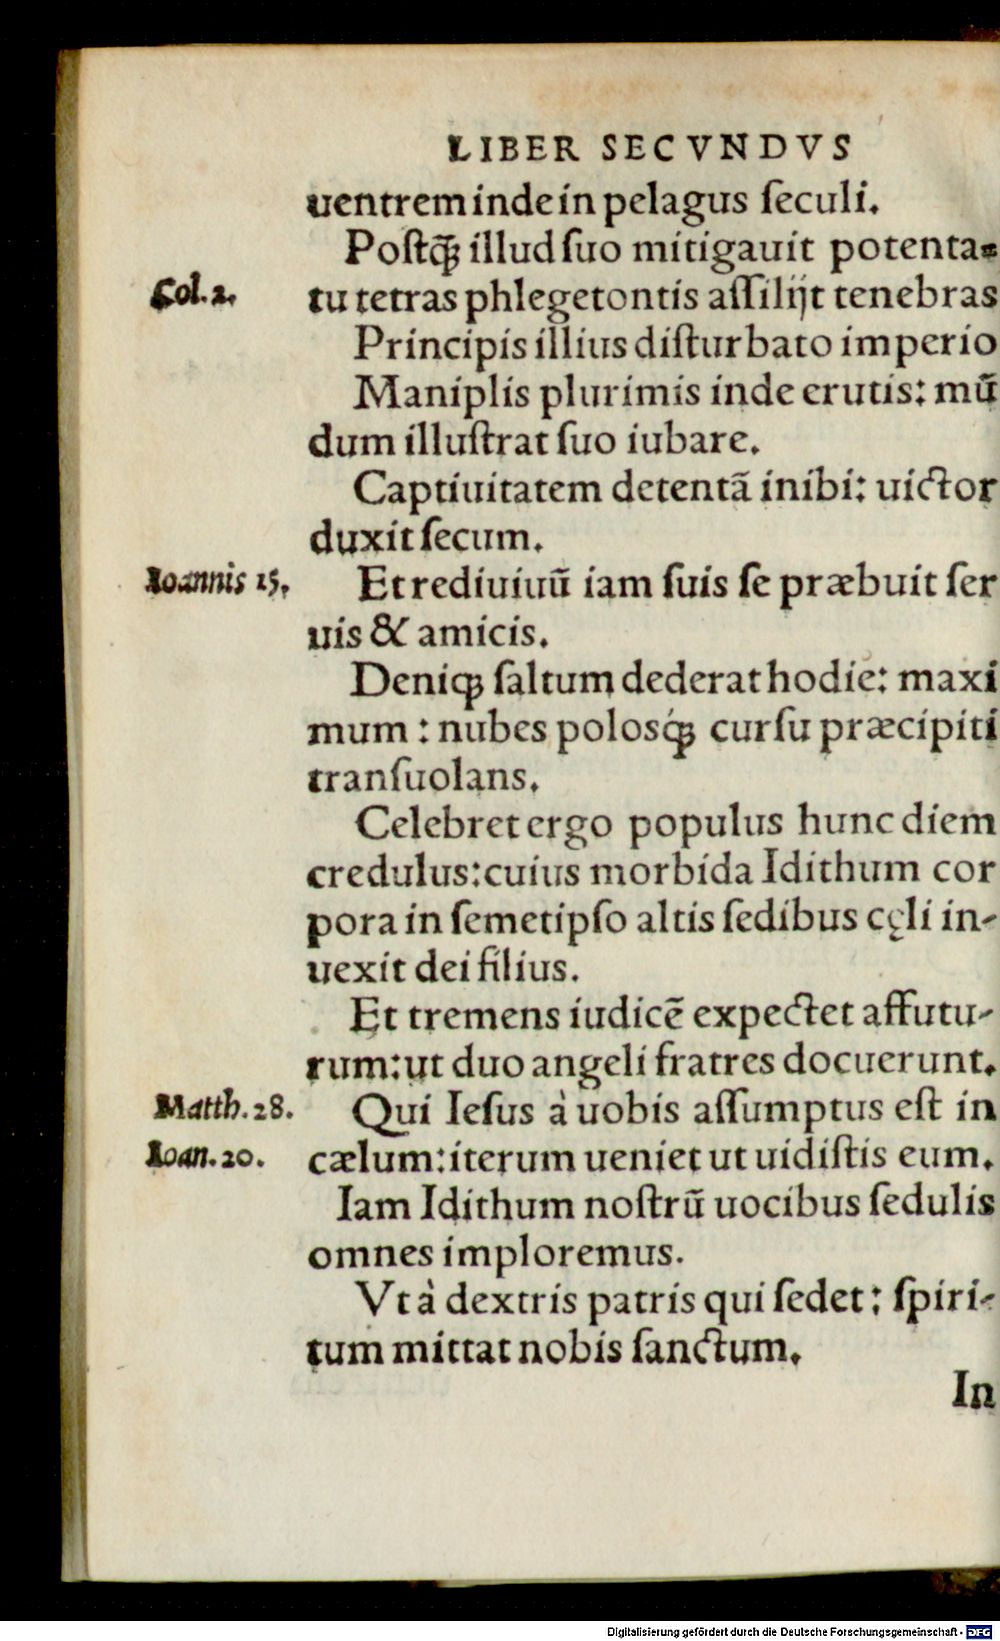 LIBER SECVNDVS
uentrem inde in pelagus ſeculi.
Poſtq̃ꝫ illud ſuo mitigauit potenta-
Col. 2.
tu tetras phlegetontis aſſilijt tenebras
Principis illius diſturbato imperio
Maniplis plurimis inde erutis: mũ
dum illuſtrat ſuo iubare.
Captiuitatem detentã inibi: uictor
duxit ſecum.
Ioannis 15.
Et rediuiuũ iam ſuis ſe præbuit ſer
uis & amicis.
Deniqꝫ ſaltum dederat hodie: maxi
mum: nubes polosq́ꝫ curſu præcipiti
tranſuolans.
Celebret ergo populus hunc diem
credulus: cuius morbida Idithum cor
pora in ſemetipſo altis ſedibus cęli in-
uexit dei filius.
Et tremens iudicẽ expectet affutu-
rum: ut duo angeli fratres docuerunt.
Matth. 28.
Qui Ieſus à uobis aſſumptus eſt in
Ioan. 20.
cælum: iterum ueniet ut uidiſtis eum.
Iam Idithum noſtrũ uocibus ſedulis
omnes imploremus.
Vt à dextris patris qui ſedet: ſpiri-
tum mittat nobis ſanctum.
In
Digitalisierung gefördert durch die Deutsche Forschungsgemeinschaft - DFG